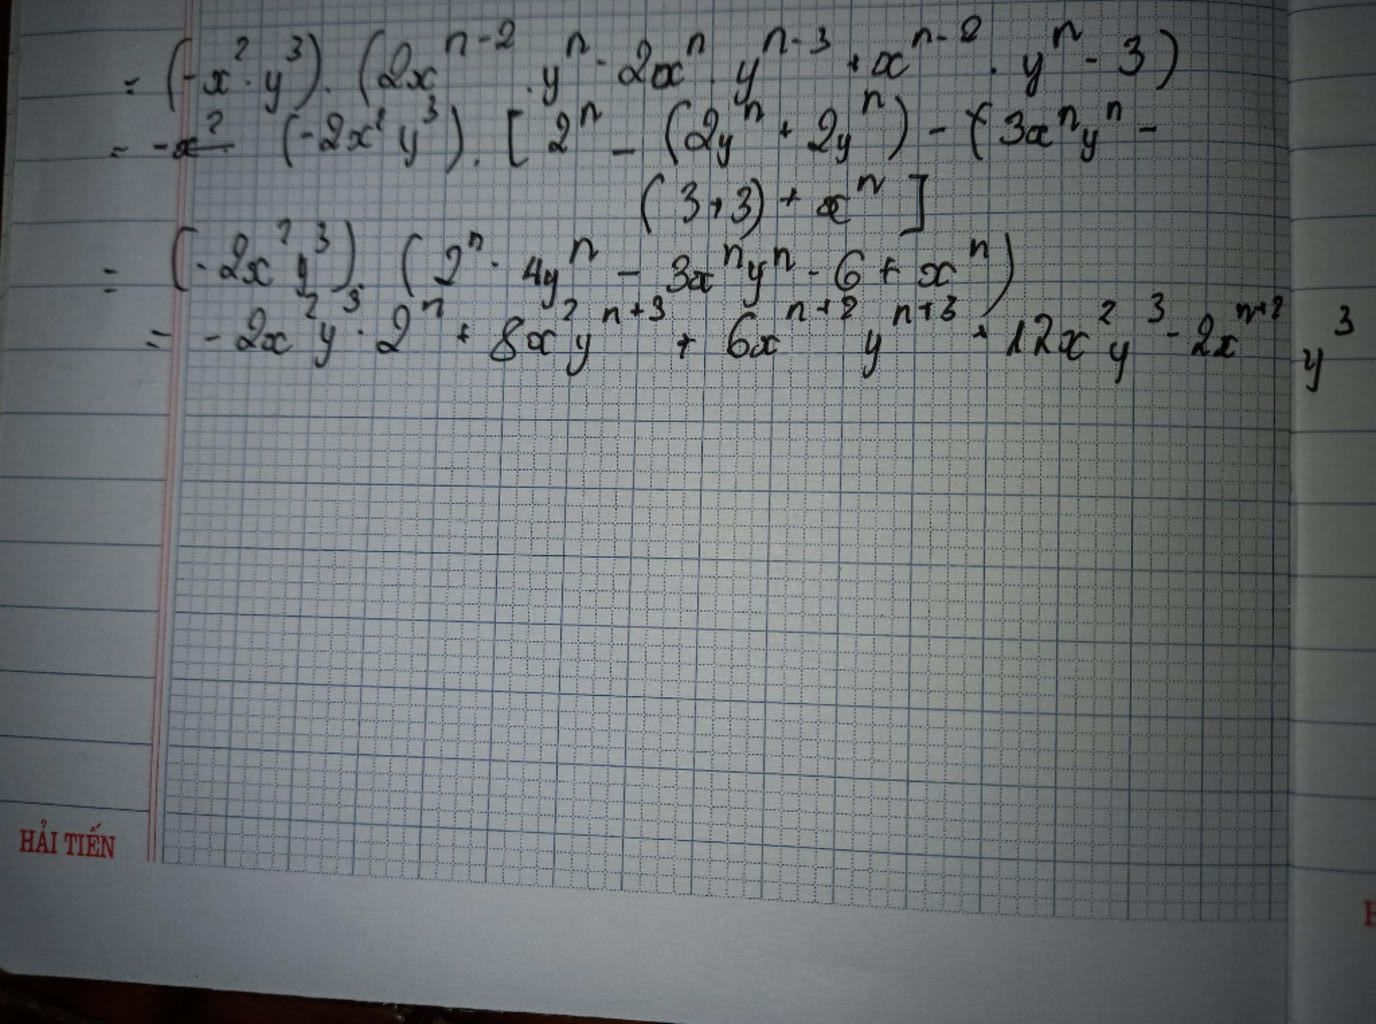 = (-x² · y³) · (2xⁿ⁻² · yⁿ - 2xⁿ · yⁿ⁻³ + xⁿ⁻² · yⁿ - 3)
= -x² (-2x² y³) · [ 2ⁿ - (2yⁿ + 2yⁿ) - (3xⁿyⁿ -
(3+3) + xⁿ ]
= (-2x² y³) · (2ⁿ · 4yⁿ - 3xⁿyⁿ - 6 + xⁿ)
= -2x²y³ · 2ⁿ + 8x²yⁿ⁺³ + 6xⁿ⁺²yⁿ⁺³ + 12x²y³ - 2xⁿ⁺² y³
HẢI TIẾN